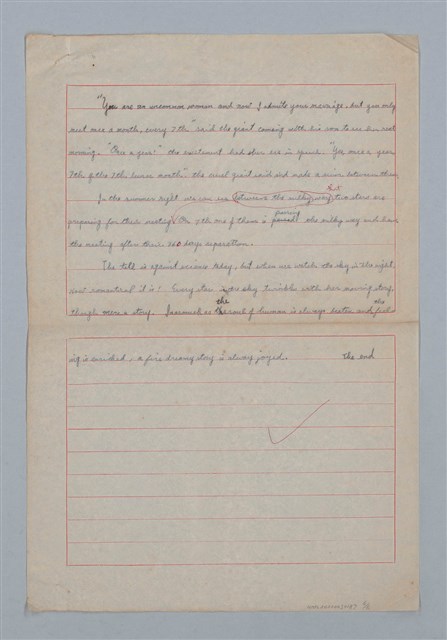 "You are an uncommon woman and now I admite your marriage, but you only
meet once a month, every 7th" said the giant coming with his son to see her next
morning. "Once a year!" the excitement had shown her in speech. "Yes, once a year
7th of the 7th lunar month. the cruel giant said and made a river between them
In the summer night we can see between the milky way two stars are
preparing for their meeting. On 7th one of them is the milky way and have
the meeting after their 360 days separation.
The tale is against science today, but when we watch the sky in the night
how romantical it is! Every star in the sky twinkle with her moving story,
though even a story. Inasmuch as the soul of human is always
is enriched, a fine dreamy story is always joyed.. The end